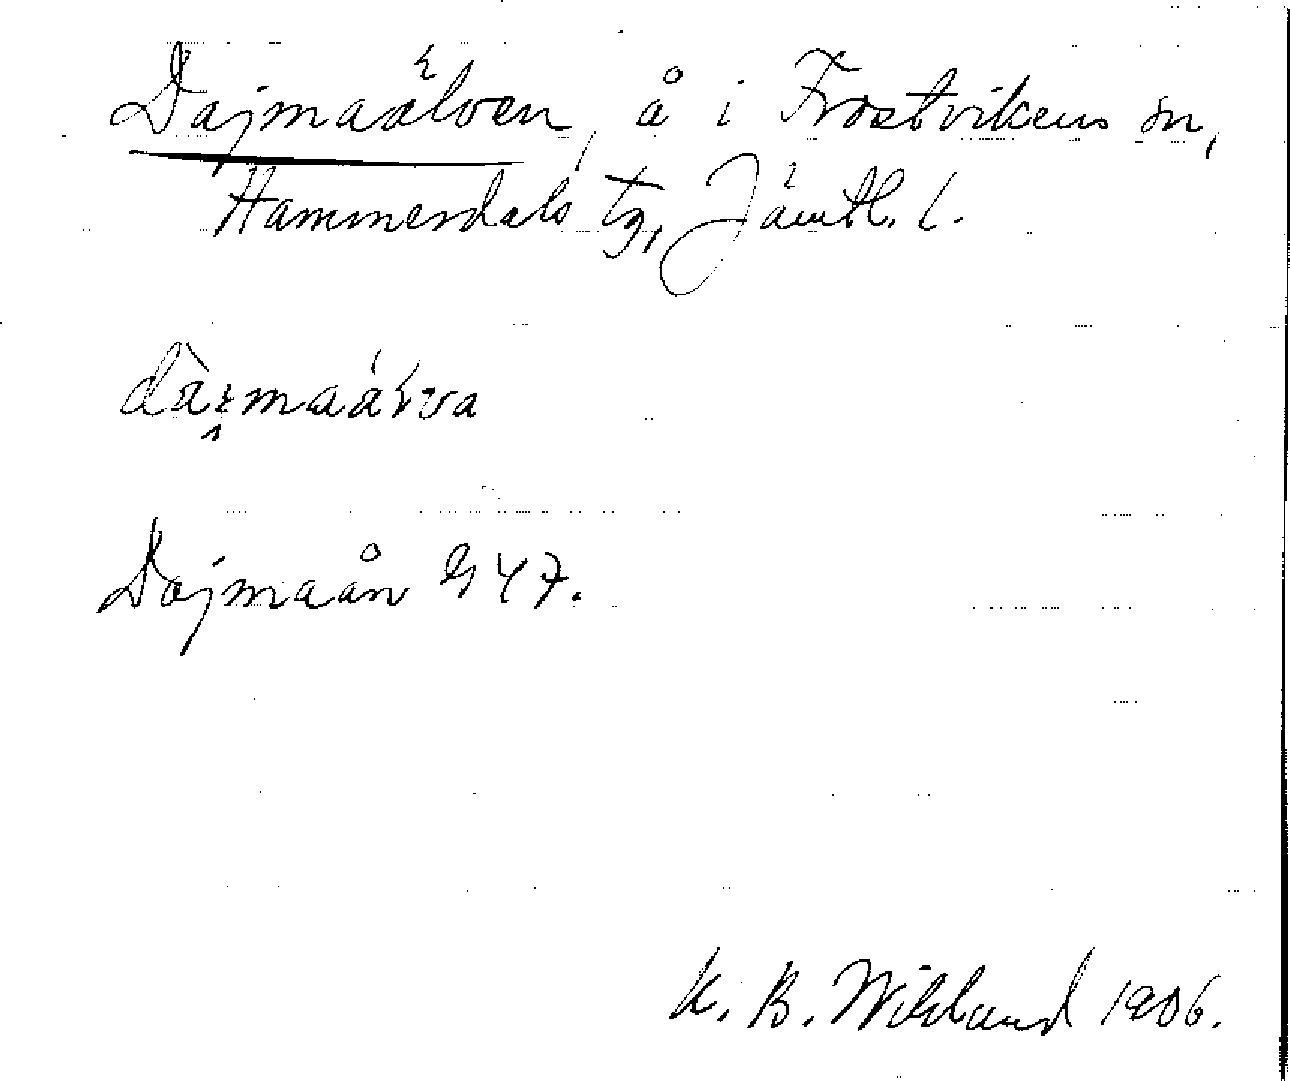 Dajmaälven, å i Frostvikens sn,
Hammerdals tg, Jämtl. l.
Dajmaån G 47.
K. B. Wiklund 1906.